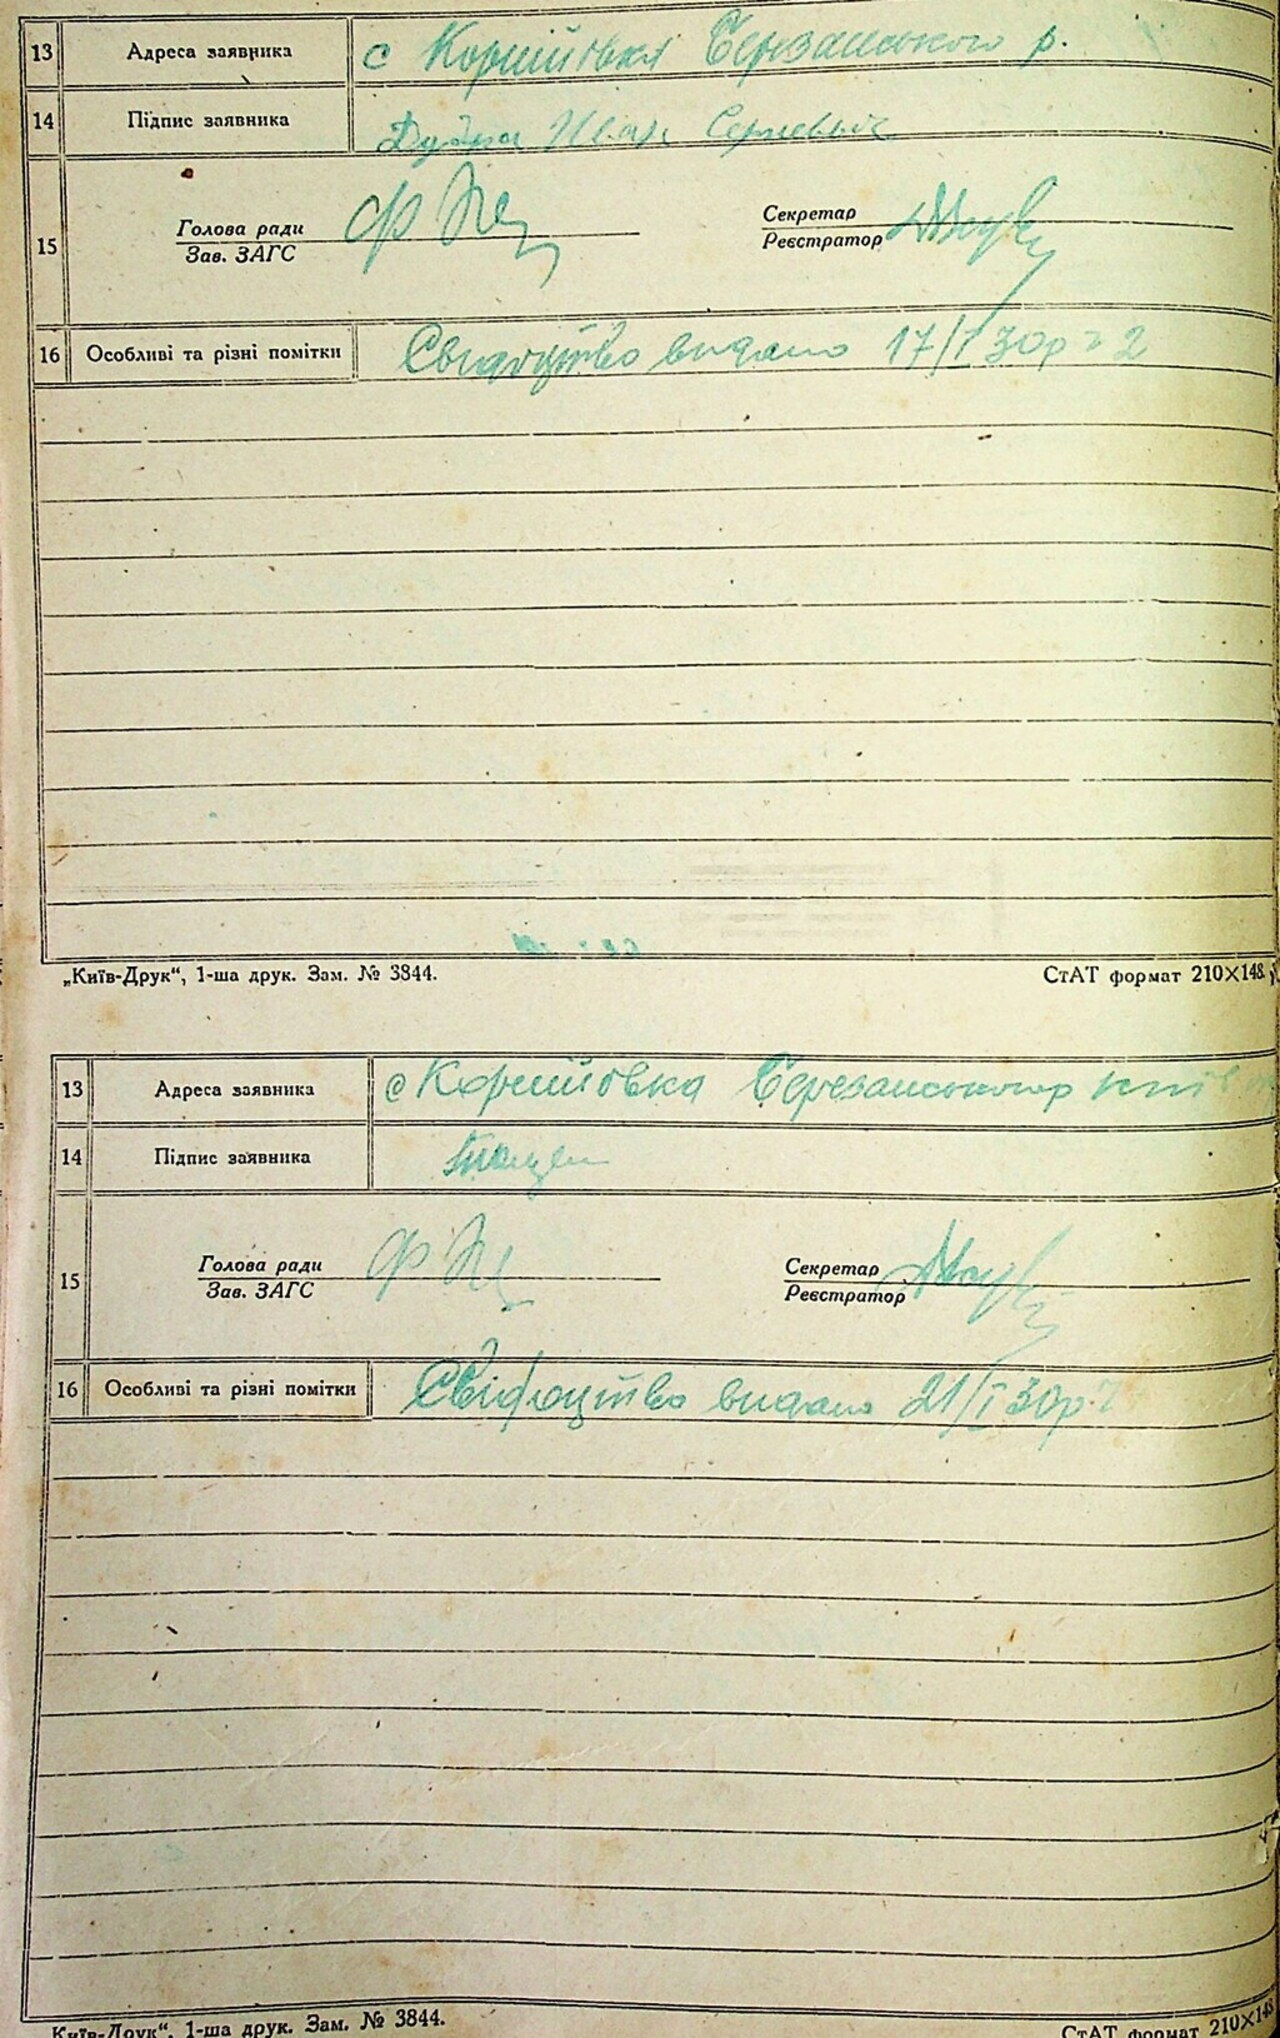 13 Адреса заявника с Корніївка Березанського р.
14 Підпис заявника Іван Сергеевич
15 Голова ради Зав. ЗАГС Секретар Реєстратор
16 Особливі та різні помітки Свидоцтво видано 17/I 30р 2
„Київ-Друк“, 1-ша друк. Зам. № 3844. СтАТ формат 210×148.
13 Адреса заявника с Корніївка Березанського р
14 Підпис заявника
15 Голова ради Зав. ЗАГС Секретар Реєстратор
16 Особливі та різні помітки Свідоцтво видано 21/I 30р.
Київ-Друк“, 1-ша друк. Зам. № 3844. СтАТ формат 210×148